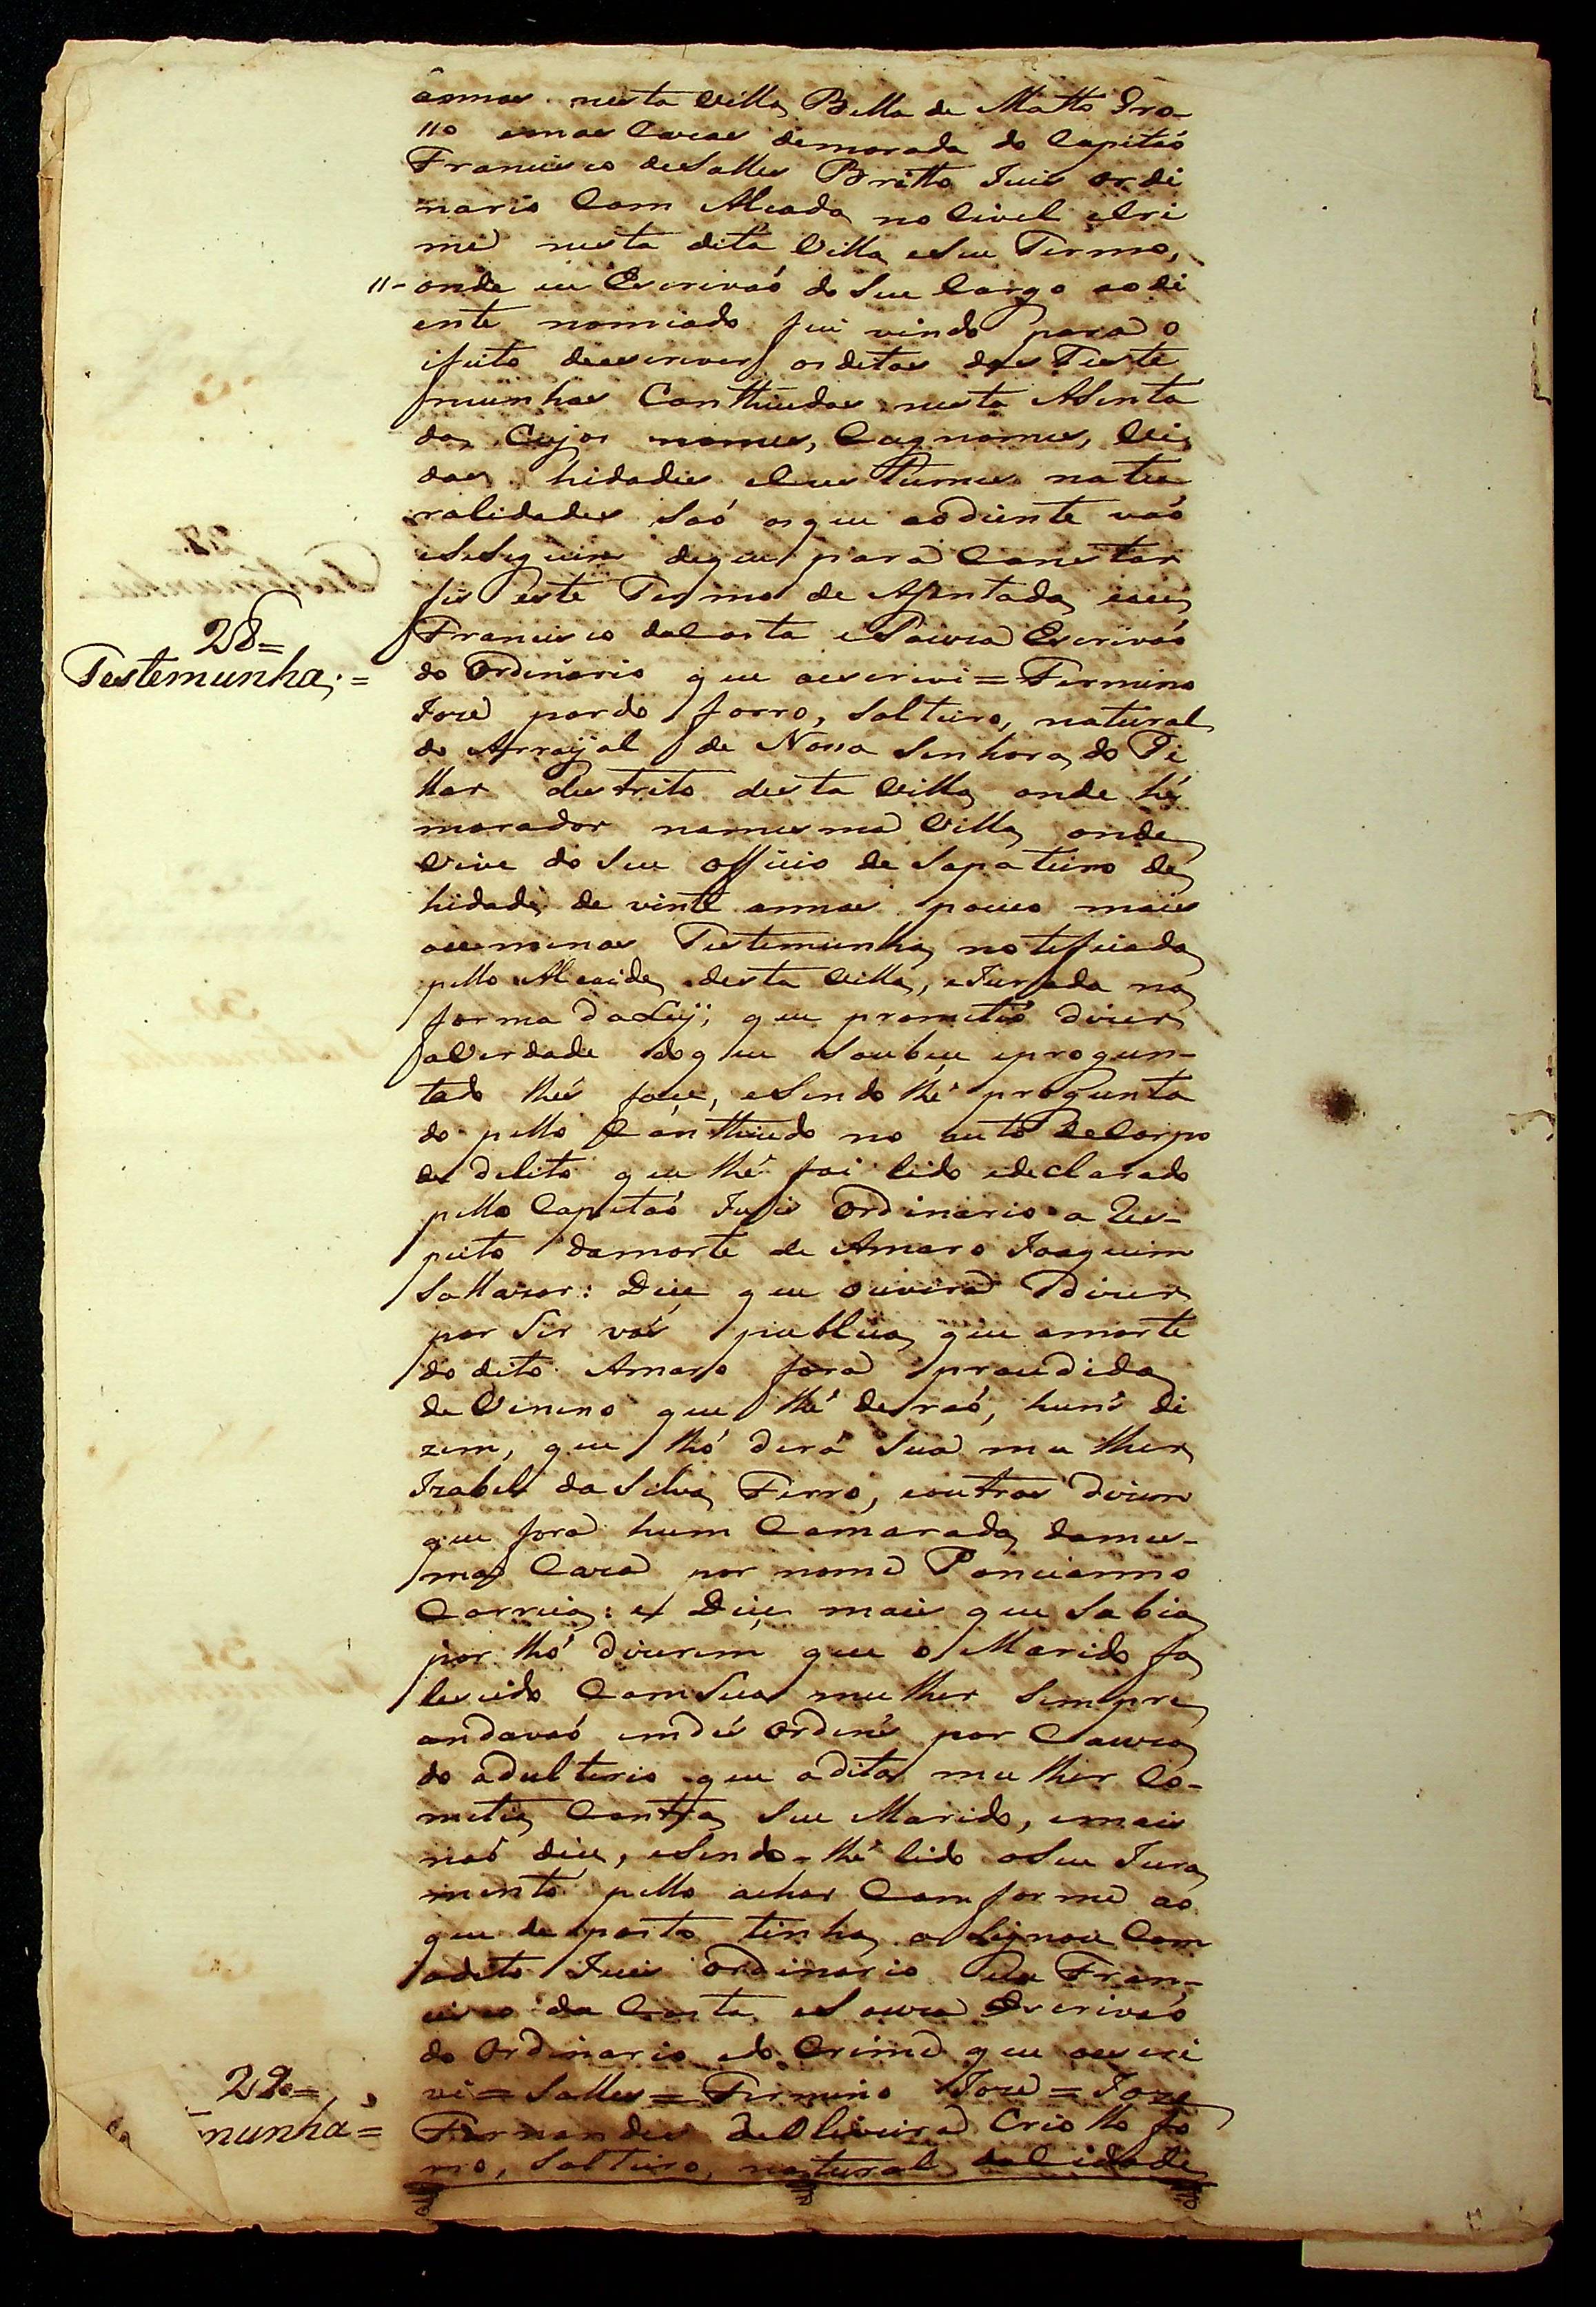 annos nesta Villa Bella de Matto Gro-
sso emas Cazas demorada do Capitaó
Francisco deSalles Britto Juis ordi
nario Com Alcada no Civel eCri
me nesta dita Villa eSeu Termo,
onde eu Escrivaó do Seu Cargo aodi
ente nomiado fui vindo para o
ifeito deescrever os ditos das Teste
munhas Conttheudas nesta ASenta
da, Cujos nomes, Cognomes, Vi
das, hidades eCustumes natu
ralidades Saó osque aodiente vaó
eSeguir dequi para Constar
fis este Termo de Asentada, eeu
Francisco daCosta eSouza Escrivaó
28=
Testemunha;=
do Ordinario que oescrivi = Fermino
Jozé pardo forro, Solteiro, natural
do Arrayal de Nossa Senhora, do Pi
llar destrito desta Villa, onde hé
morador namesma Villa, onde
Vive do Seu officio de Sapateiro de
hidade de vinte annos pouco mais
oumenos Testemunha, notificada
pello Alcaide desta Villa, eJurada na
forma daLey; que prometeo dizer
aVerdade doque Soubeu eprogun-
tado lhés foçe, eSendo lhé progunta
do pello Conttheudo no auto deCorpo
de delito que lhé foi lido edeclarado
pello Capitaó Juis Ordinario a Res-
peito damorte de Amaro Joaquim
Sallazar: Diçe que ouvira dizer
por Ser vós publica, que amorte
do dito Amaro fora procedida
deVineno que lhé deraó, huns di
zem, que lhó dera Sua mulher
Izabel da Silva Ferro, eoutros dizem
que fora hum Camarada dames-
ma Caza por nome Poncianno
Correia: e Diçe mais que Sabia
por lhó dizerem que o Marido fa
lescido ComSua mulher Sempre
andavaó emdés ordens por Cauza
do adulterio que adita mulher Co-
metia Contra Seu Marido, emais
naó diçe, eSendo-lhé lido oSeu Jura
mento pello achar Comforme ao
que deposto tinha, asignou Com
odito Juis ordinario eeu Fran-
cisco da Costa eSouza Escrivaó
do Ordinario edo Crime que oescri
29=
munha=
vi = Salles = Fermino Jozé = Joze
Fernandes deOliveira Criollo fo
rro, Solteiro, natural daCidade